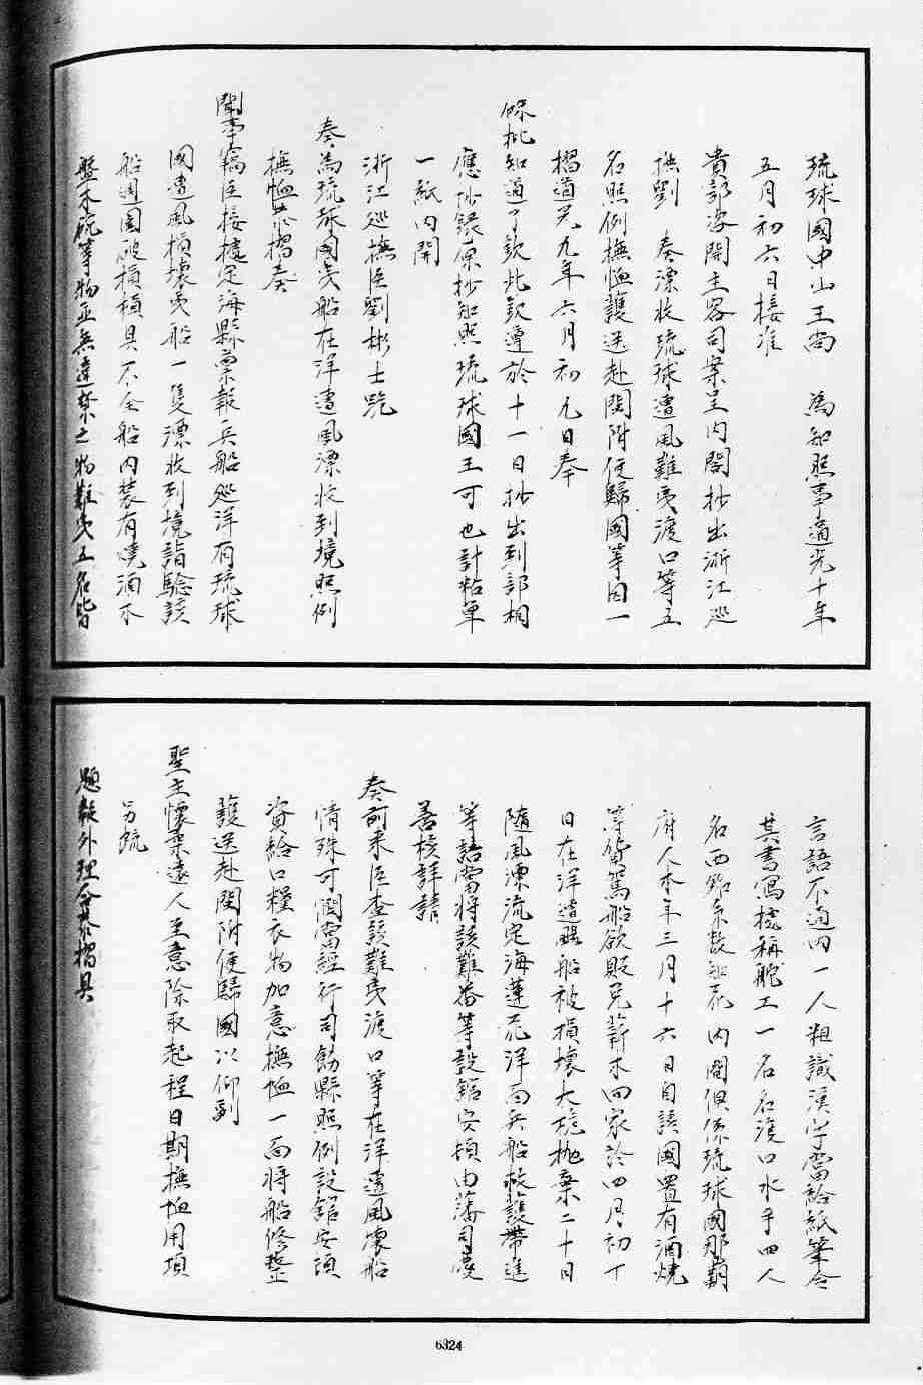 琉球國中山王尚　為知照事道光十年
五月初六日接准
貴部咨開主客司案呈內閣抄出浙江巡
撫劉　奏漂收琉球遭風難夷渡口等五
名照例撫恤護送赴閩附便歸國等因一
摺道光九年六月初九日奉
硃批知道了欽此欽遵於十一日抄出到部相
應抄錄原抄知照琉球國王可也計粘單
一紙內開
浙江巡撫臣劉彬士跪
奏為琉球國夷船在洋遭風漂收到境照例
撫恤恭摺奏
聞事竊臣接據定海縣稟報兵船巡洋有琉球
國遭風損壞夷船一隻漂收到境詣驗該
船週圍破損槓具不全船內裝有燒酒木
盤木碗等物並無違禁之物難夷五名皆
言語不通內一人粗識漢字當給紙筆令
其書寫據稱舵工一名名渡口水手四人
名西
內間俱係琉球國那霸
府人本年三月十六日自該國置有酒燒
等貨駕船欲販兌薪木回家於四月初十
日在洋遭颶船被損壞大桅拋棄二十日
隨風漂流定海蓮花洋面兵船救護帶進
等語當將該難番等設館安頓由藩司慶
善核詳請
奏前來臣查該難夷渡口等在洋遭風壞船
情殊可憫當經行司飭縣照例設館安頓
資給口糧衣物加意撫恤一面將船修整
護送赴閩附便歸國以仰副
聖主懷柔遠人至意除取起程日期撫恤用項
另疏
題報外理合恭摺具
6324